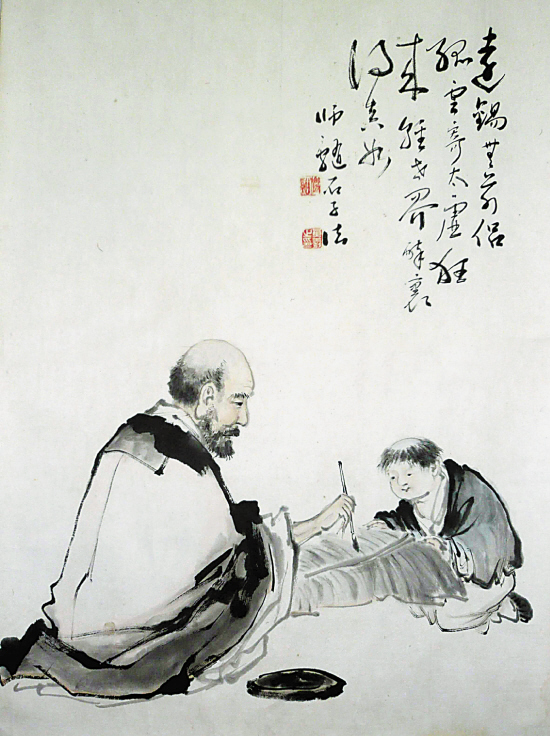 遠錫無前侶
孤雲寄太虛狂
來輕世界醉裏
得真如
師石子法